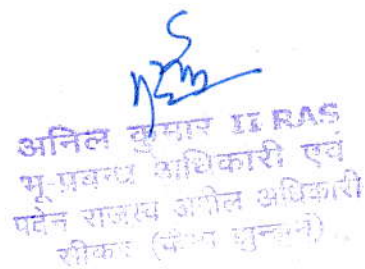 अनिल कुमार II RAS
भू-प्रबन्ध अधिकारी एवं
पदेन राजस्व अपील अधिकारी
सीकर